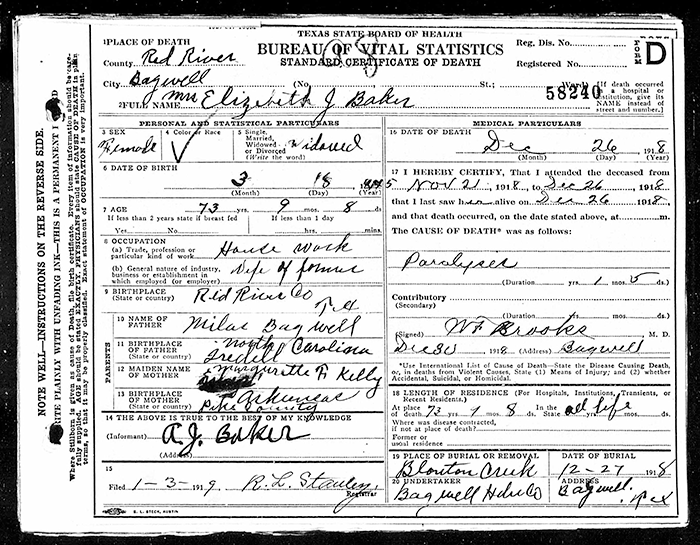 TEXAS STATE BOARD OF HEALTH
BUREAU OF VITAL STATISTICS
STANDARD CERTIFICATE OF DEATH
Reg. Dis. No.
Registered No.
FORM D
1 PLACE OF DEATH
County Red River
City Bagwell (No St.; Ward)
58240
[If death occurred in a hospital or institution, give its NAME instead of street and number.]
2 FULL NAME Mrs Elizabeth J Baker
PERSONAL AND STATISTICAL PARTICULARS
3 SEX Female
4 Color or Race
5 Single, Married, Widowed or Divorced (Write the word) Widowed
6 DATE OF BIRTH 3 18
(Month) (Day) (Year)
7 AGE 73 yrs. 9 mos. 8 ds.
If less than 2 years state if breast fed If less than 1 day
Yes No hrs. mins.
8 OCCUPATION
(a) Trade, profession or particular kind of work House work
(b) General nature of industry, business or establishment in which employed (or employer) Wife of farmer
9 BIRTHPLACE (State or country) Red River Co Tex
PARENTS
10 NAME OF FATHER Milas Bagwell
11 BIRTHPLACE OF FATHER (State or country) North Carolina Iredell
12 MAIDEN NAME OF MOTHER Margurette F. Kelly
13 BIRTHPLACE OF MOTHER (State or country) Arkansas Pike County
14 THE ABOVE IS TRUE TO THE BEST OF MY KNOWLEDGE
(Informant) A.J. Baker
(Address)
15
Filed 1-3-1919. R. L. Stanley,
Registrar
E. L. STECK, AUSTIN
MEDICAL PARTICULARS
16 DATE OF DEATH Dec 26 1918
(Month) (Day) (Year)
17 I HEREBY CERTIFY, That I attended the deceased from
Nov 21 1918, to Dec 26 1918
that I last saw her alive on Dec 26 1918
and that death occurred, on the date stated above, at m.
The CAUSE OF DEATH* was as follows:
Paralyses
(Duration yrs. 1 mos. 5 ds.
Contributory
(Secondary)
(Duration yrs. mos. ds.
(Signed) W F Brooks M. D.
Dec 30 1918 (Address) Bagwell
*Use International List of Cause of Death—State the Disease Causing Death, or, in deaths from Violent Causes, State (1) Means of Injury; and (2) whether Accidental, Suicidal, or Homicidal.
18 LENGTH OF RESIDENCE (For Hospitals, Institutions, Transients, or Recent Residents.)
At place 73 yrs. 1 mos. 8 ds. In the State all life
Where was disease contracted, if not at place of death?
Former or usual residence
19 PLACE OF BURIAL OR REMOVAL
DATE OF BURIAL
12-27 1918
20 UNDERTAKER
ADDRESS
Bagwell Hdw Co Bagwell, Tex
NOTE WELL—INSTRUCTIONS ON THE REVERSE SIDE.